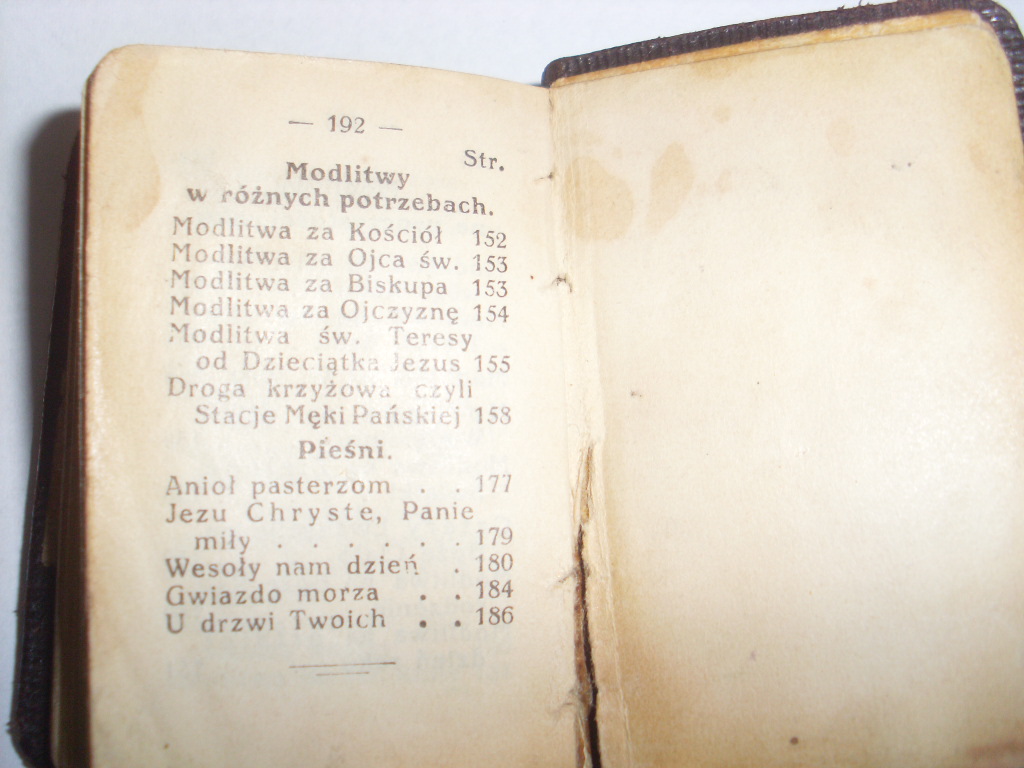 — 192 —
Str.
Modlitwy
w różnych potrzebach.
Modlitwa za Kościół 152
Modlitwa za Ojca św. 153
Modlitwa za Biskupa 153
Modlitwa za Ojczyznę 154
Modlitwa św. Teresy
od Dzieciątka Jezus 155
Droga krzyżowa czyli
Stacje Męki Pańskiej 158
Pieśni.
Anioł pasterzom . . 177
Jezu Chryste, Panie
miły . . . . . . 179
Wesoły nam dzień . 180
Gwiazdo morza . . 184
U drzwi Twoich . . 186